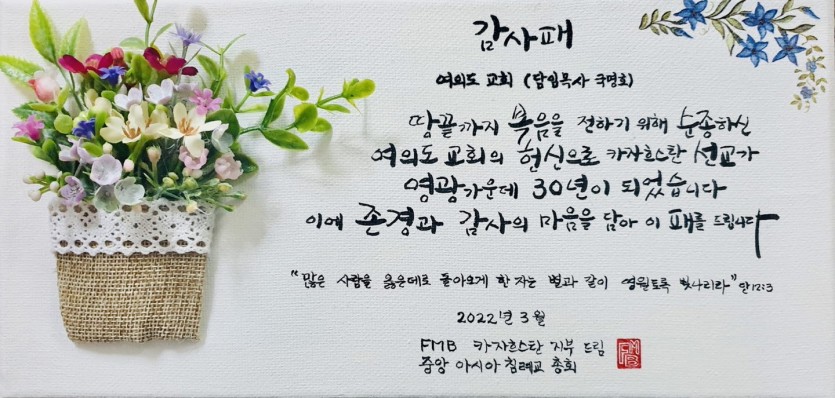 감사패
여의도 교회 (담임목사 국명호)
땅끝까지 복음을 전하기 위해 순종하신
여의도 교회의 헌신으로 카자흐스탄 선교가
영광가운데 30년이 되었습니다
이에 존경과 감사의 마음을 담아 이 패를 드립니다
"많은 사람을 옳은데로 돌아오게 한 자는 별과 같이 영원토록 빛나리라" 단12:3
2022년 3월
FMB 카자흐스탄 지부 드림
중앙 아시아 침례교 총회